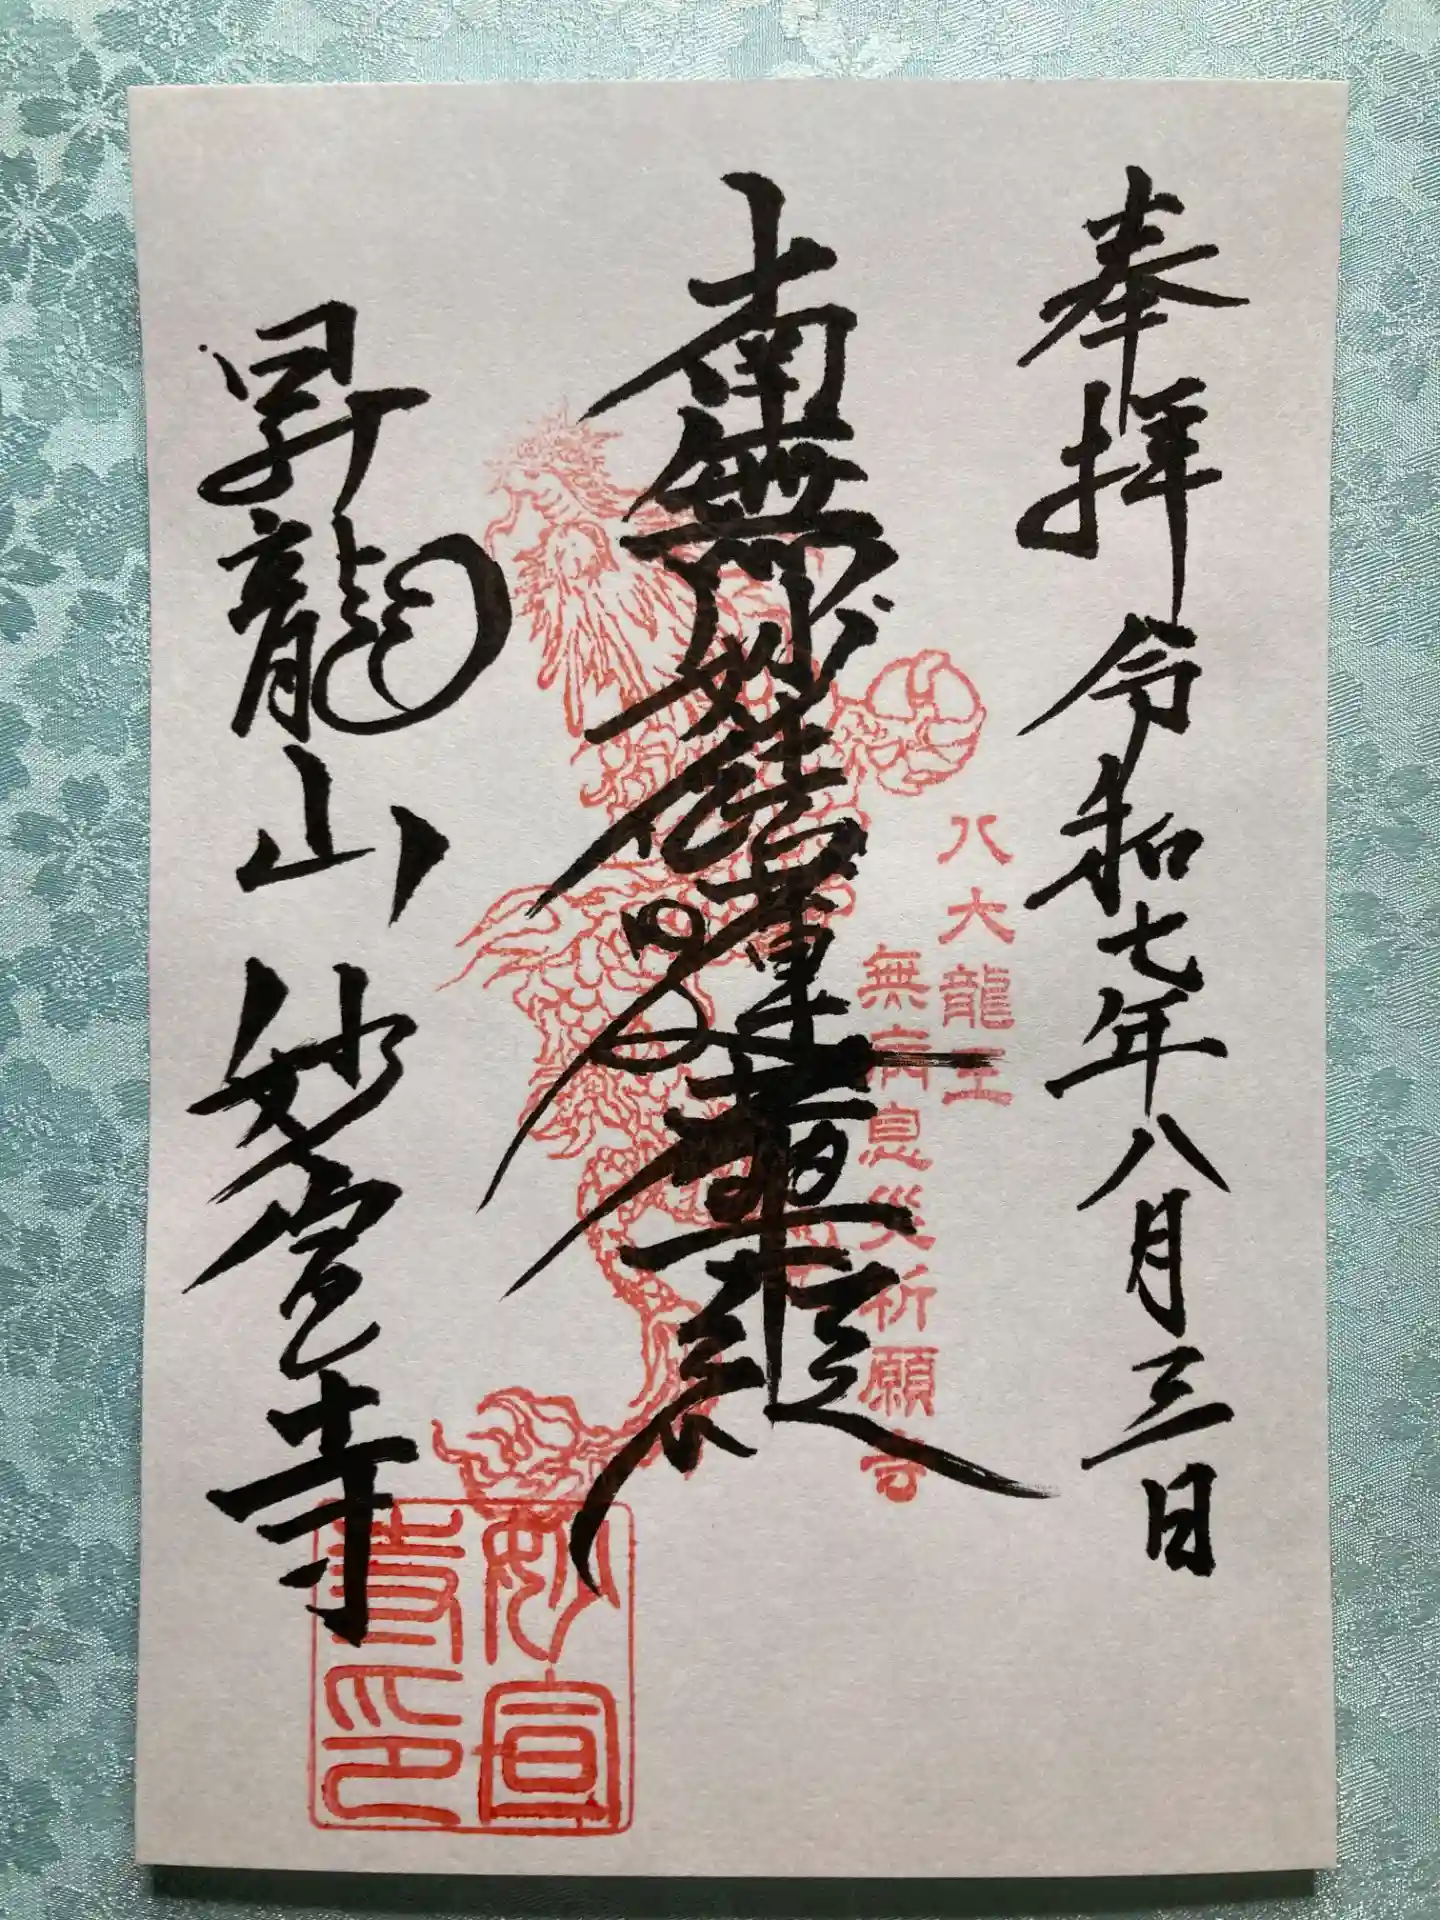 奉拝 令和七年八月三日
八大龍王
無病息災祈願会
南無妙法蓮華経
昇龍山 妙宣寺
妙宣寺印